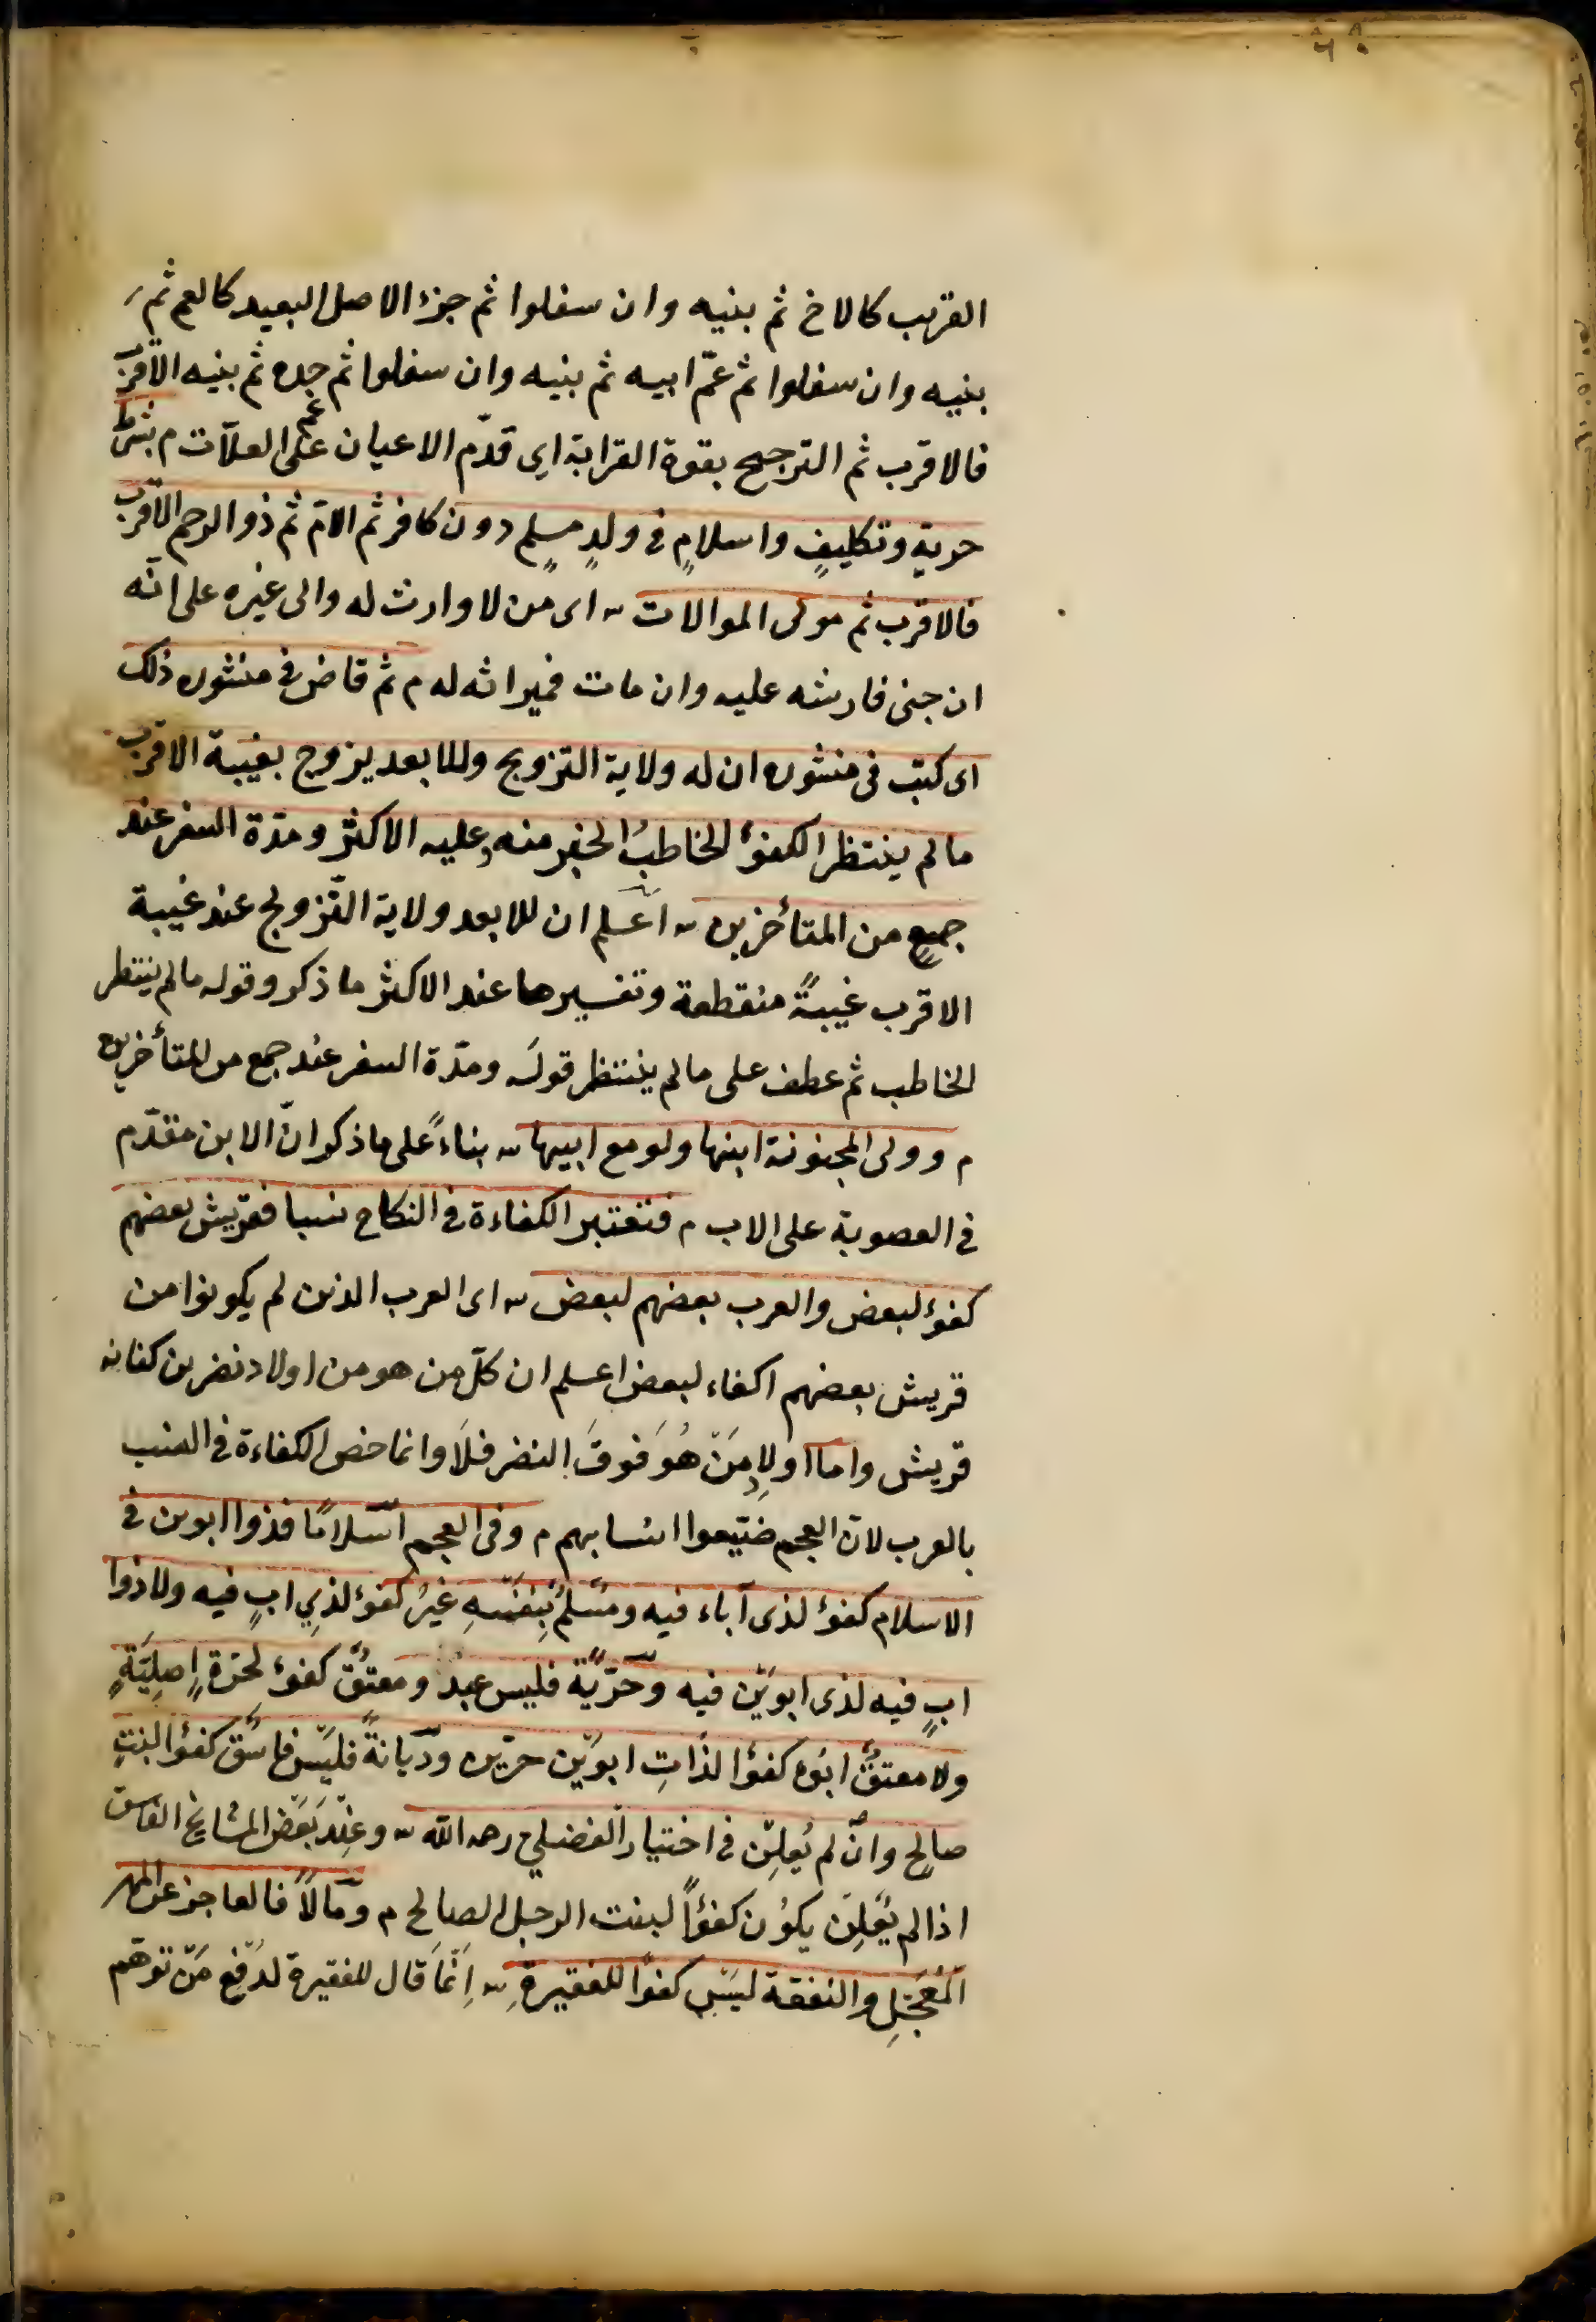 القريب كالاخ ثم بنيه وان سفلوا ثم جزء الاصل البعيد كالعم ثم
بنيه وان سفلوا ثم عمّ ابيه ثم بنيه وان سفلوا ثم عم جده ثم بنيه الاقرب
فالاقرب ثم الترجيح بقوة القرابة اى قدّم الاعيان على العلّات م بشرط
حرية وتكليفٍ واسلامٍ فى ولدٍ مسلمٍ دون كافر ثم الامّ ثم ذو الرحم الاقرب
فالاقرب ثم مولى الموالات ~ اى من لا وارث له والى غيره على انّه
ان جنى فارشه عليه وان مات فميراثه له م ثم قاض فى منشوره ذلك
اى كتب فى منشوره ان له ولاية التزويج وللابعد يزوج بغيبة الاقرب
مالم ينتظر الكفؤُ الخاطبُ الخبر منه وعليه الاكثر ومدّة السفر عند
جمعٍ من المتأخرين ~ اعلم ان للابعد ولاية التّزويج عند غيبة
الاقرب غيبةً منقطعة وتفسيرها عند الاكثر ما ذكر وقوله مالم ينتظر
الخاطب ثم عطف على مالم ينتظر قولَه ومدّة السفر عند جمع من المتأخرين
م وولى المجنونة ابنها ولو مع ابيها ~ بناءً على ما ذكر انّ الابن مقدّم
فى العصوبة على الاب م فتعتبر الكفاءة فى النكاح نسبا فقريش بعضهم
كفؤ لبعض والعرب بعضهم لبعض ~ اى العرب الذين لم يكونوا من
قريش بعضهم اكفاء لبعض اعلم ان كلّ من هو من اولاد نضر بن كنانه
قريش واما اولادِ مَنْ هُوَ فَوقَ النضر فلَا وانما خص الكفاءة فى النسب
بالعرب لانّ العجم ضيّعوا انسابهم م وفى العجم اسْلامًا فذوا ابوين فى
الاسلام كفؤ لذى آباء فيه ومسْلمٌ بِنفْسهِ غيرُ كفؤ لذِى ابٍ فيه ولا ذوا
ابٍ فيه لذى ابويْن فيه وحرّيّة فليس عبدٌ ومعتَقٌ كفؤ لحرّةٍ اصلِيّةٍ
ولا معتقٌ ابُوه كفؤا لذَاتِ ابويْن حرّين وديَانةً فليْس فاسقٌ كفؤا لبنتِ
صالح وانْ لم يُعلِنْ فى اختيار الفضلي رحمه الله ~ وعِنْد بَعْض المشايخ الفاسق
اذا لم يُعْلِن يكوُن كفؤاً لبنت الرجل الصالح م ومَالاً فالعاجز عن المهر
المُعجَّلِ والنفقة ليسَ كفوًا للفقيرةِ ~ اِنّمَا قال للفقيرة لدفْع مَنْ توهّم